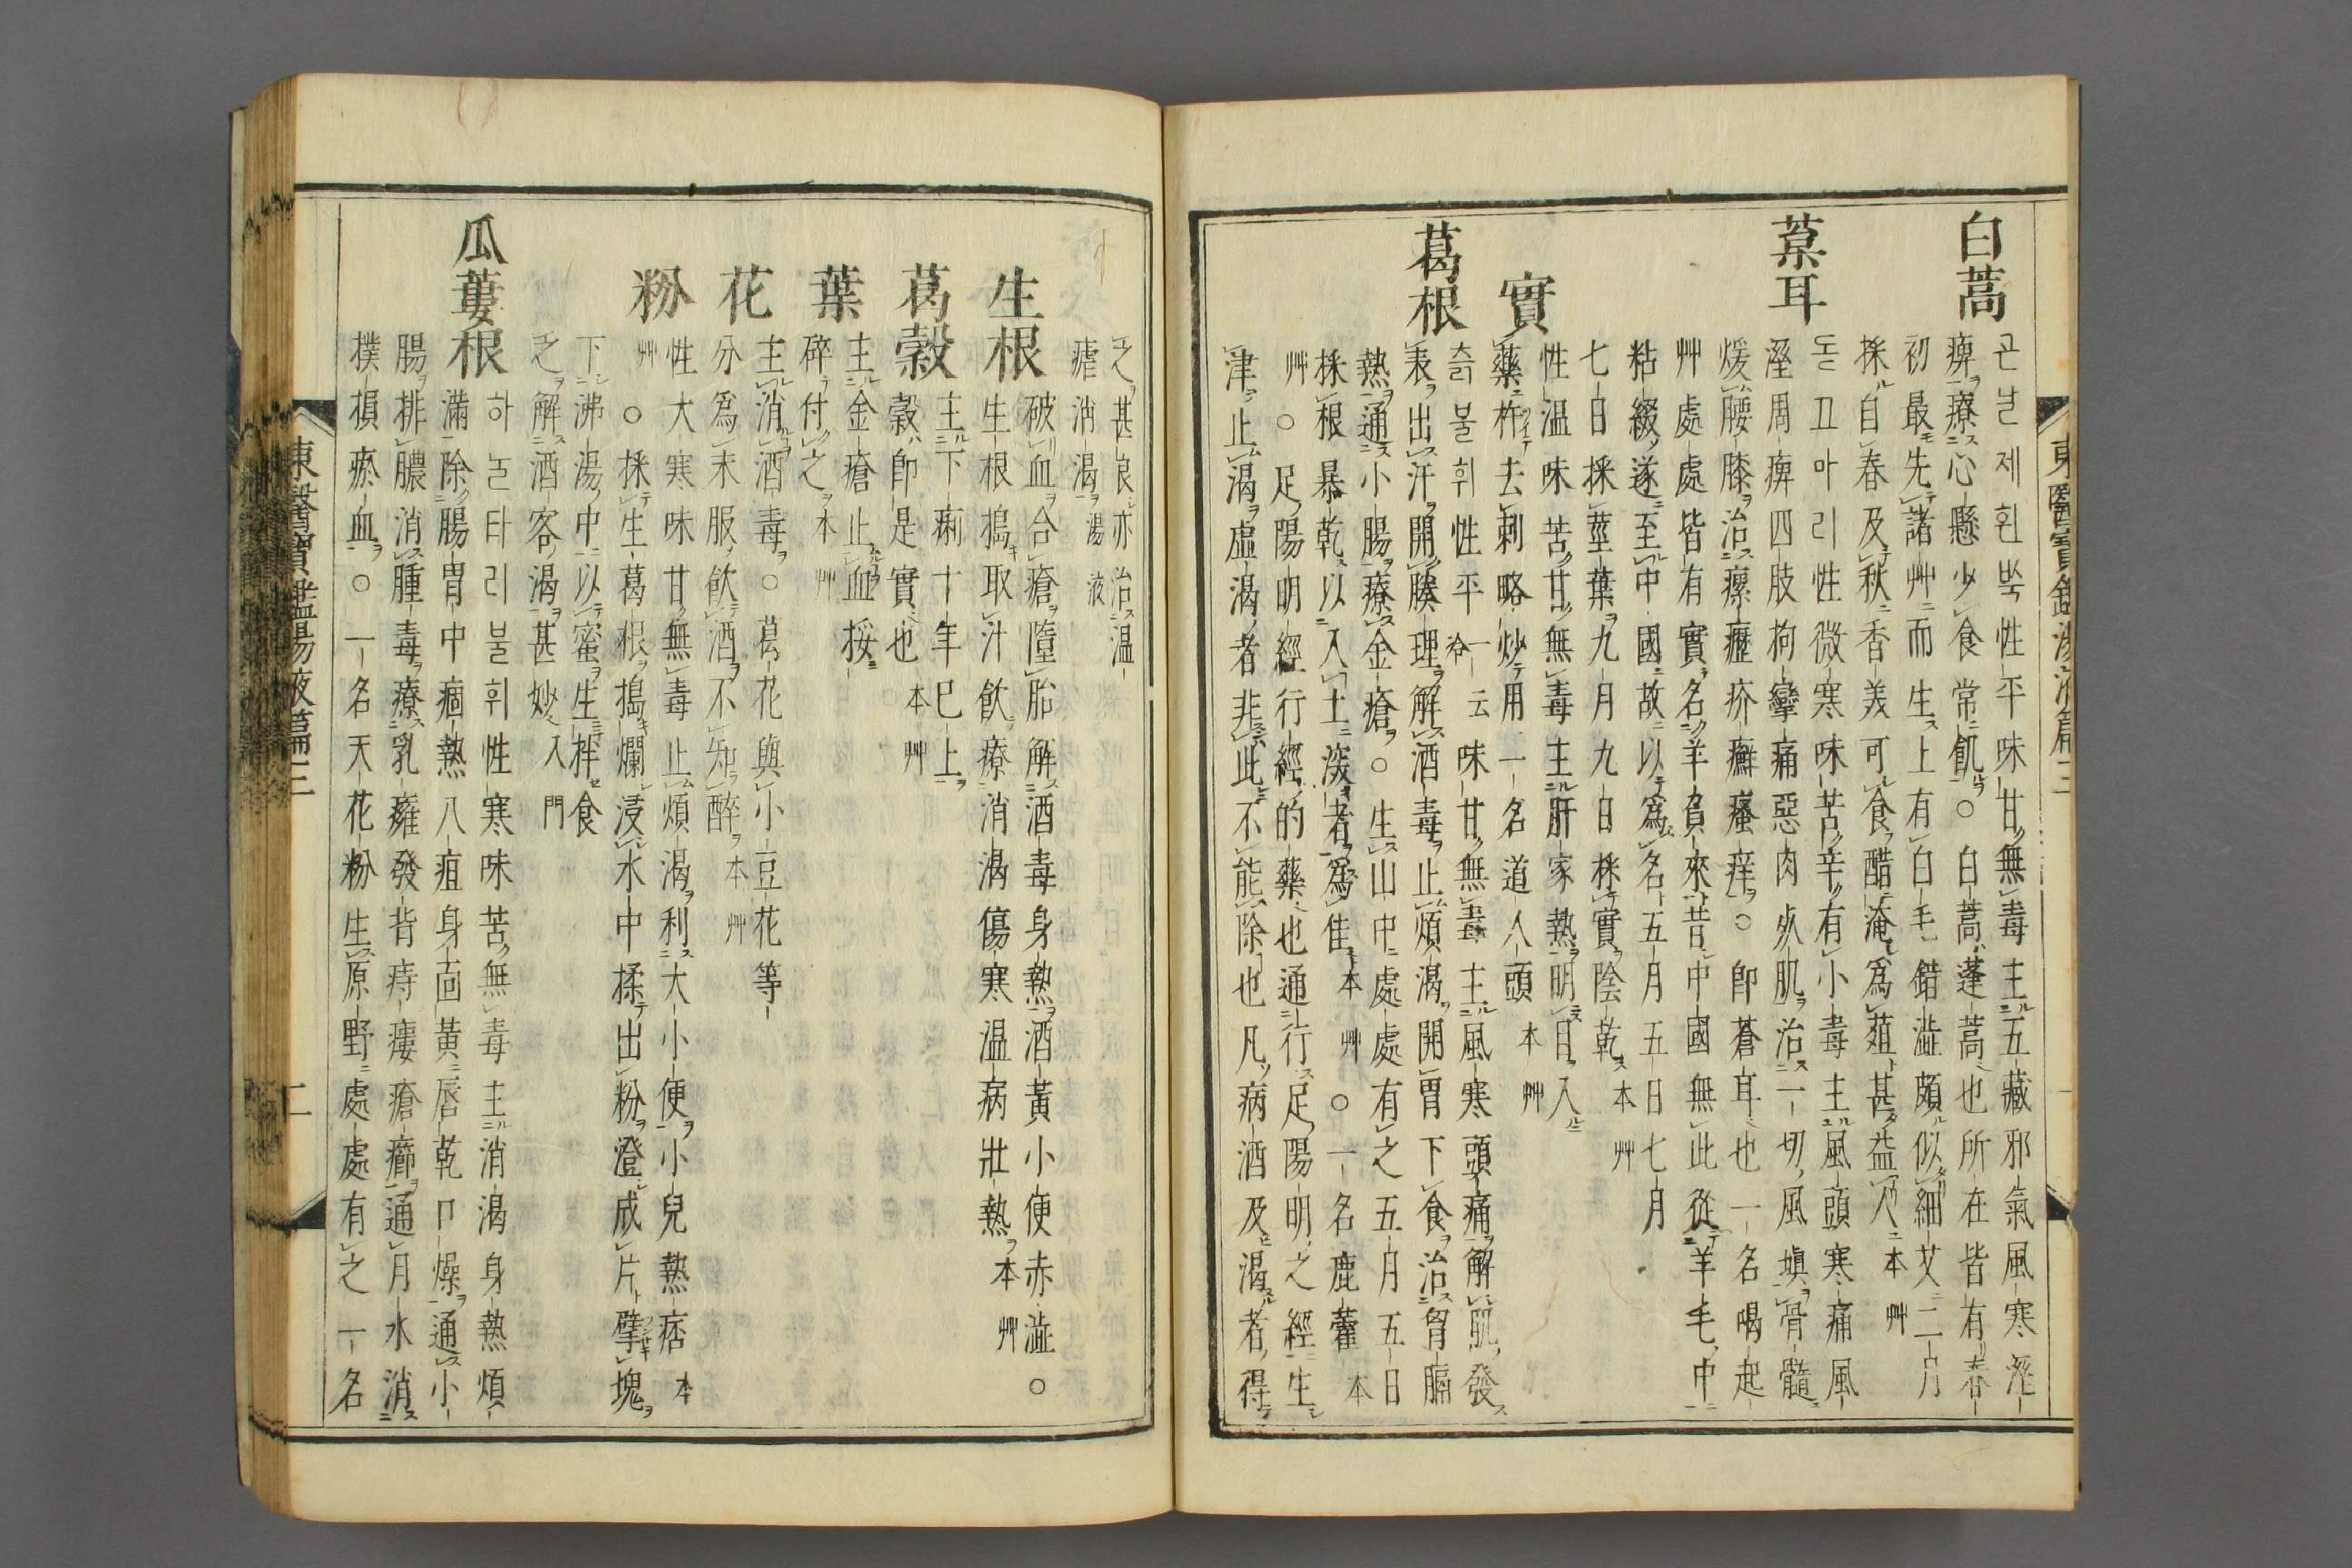 東醫寶鑑湯液篇三
白蒿
곤날제흰쑥性平味甘無毒主五藏邪氣風寒溼
痺療心懸少食常飢○白蒿蓬蒿也所在皆有春
初最先諸艸而生上有白毛錯澁頗似細艾二月
採自春及秋香美可食醋淹爲葅甚益人本艸
葈耳
돋고마리性微寒味苦辛有小毒主風頭寒痛風
溼周痺四肢拘攣痛惡肉死肌治一切風塡骨髓
煖腰膝治瘰癧疥癬瘙痒○卽蒼耳也一名喝起
艸處處皆有實名羊負來昔中國無此從羊毛中
粘綴遂至中國故以爲名五月五日七月
七日採莖葉九月九日採實陰乾本艸
實
性溫味苦甘無毒主肝家熱明目入
藥杵去刺略炒用一名道人頭本艸
葛根
츩불휘性平一云冷味甘無毒主風寒頭痛解肌發
表出汗開腠理解酒毒止煩渴開胃下食治胷膈
熱通小腸療金瘡○生山中處處有之五月五日
採根暴乾以入土深者爲佳本艸○一名鹿藿本
艸○足陽明經行經的藥也通行足陽明之經生
津止渴虛渴者非此不能除也凡病酒及渴者得
之甚良亦治溫
瘧消渴湯液
生根
破血合瘡墮胎解酒毒身熱酒黃小便赤澁○
生根搗取汁飮療消渴傷寒溫病壯熱本艸
葛穀
主下痢十年已上
穀卽是實也本艸
葉
主金瘡止血挼
碎付之本艸
花
主消酒毒○葛花與小豆花等
分爲末服飮酒不知醉本艸
粉
性大寒味甘無毒止煩渴利大小便小兒熱痞本
艸○採生葛根搗爛浸水中揉出粉澄成片擘塊
下沸湯中以蜜生拌食
之解酒客渴甚妙入門
瓜蔞根
하눌타리불휘性寒味苦無毒主消渴身熱煩
滿除腸胃中痼熱八疸身面黃唇乾口燥通小
腸排膿消腫毒療乳癰發背痔瘻瘡癤通月水消
撲損瘀血○一名天花粉生原野處處有之一名
東醫寶鑑湯液篇三
二